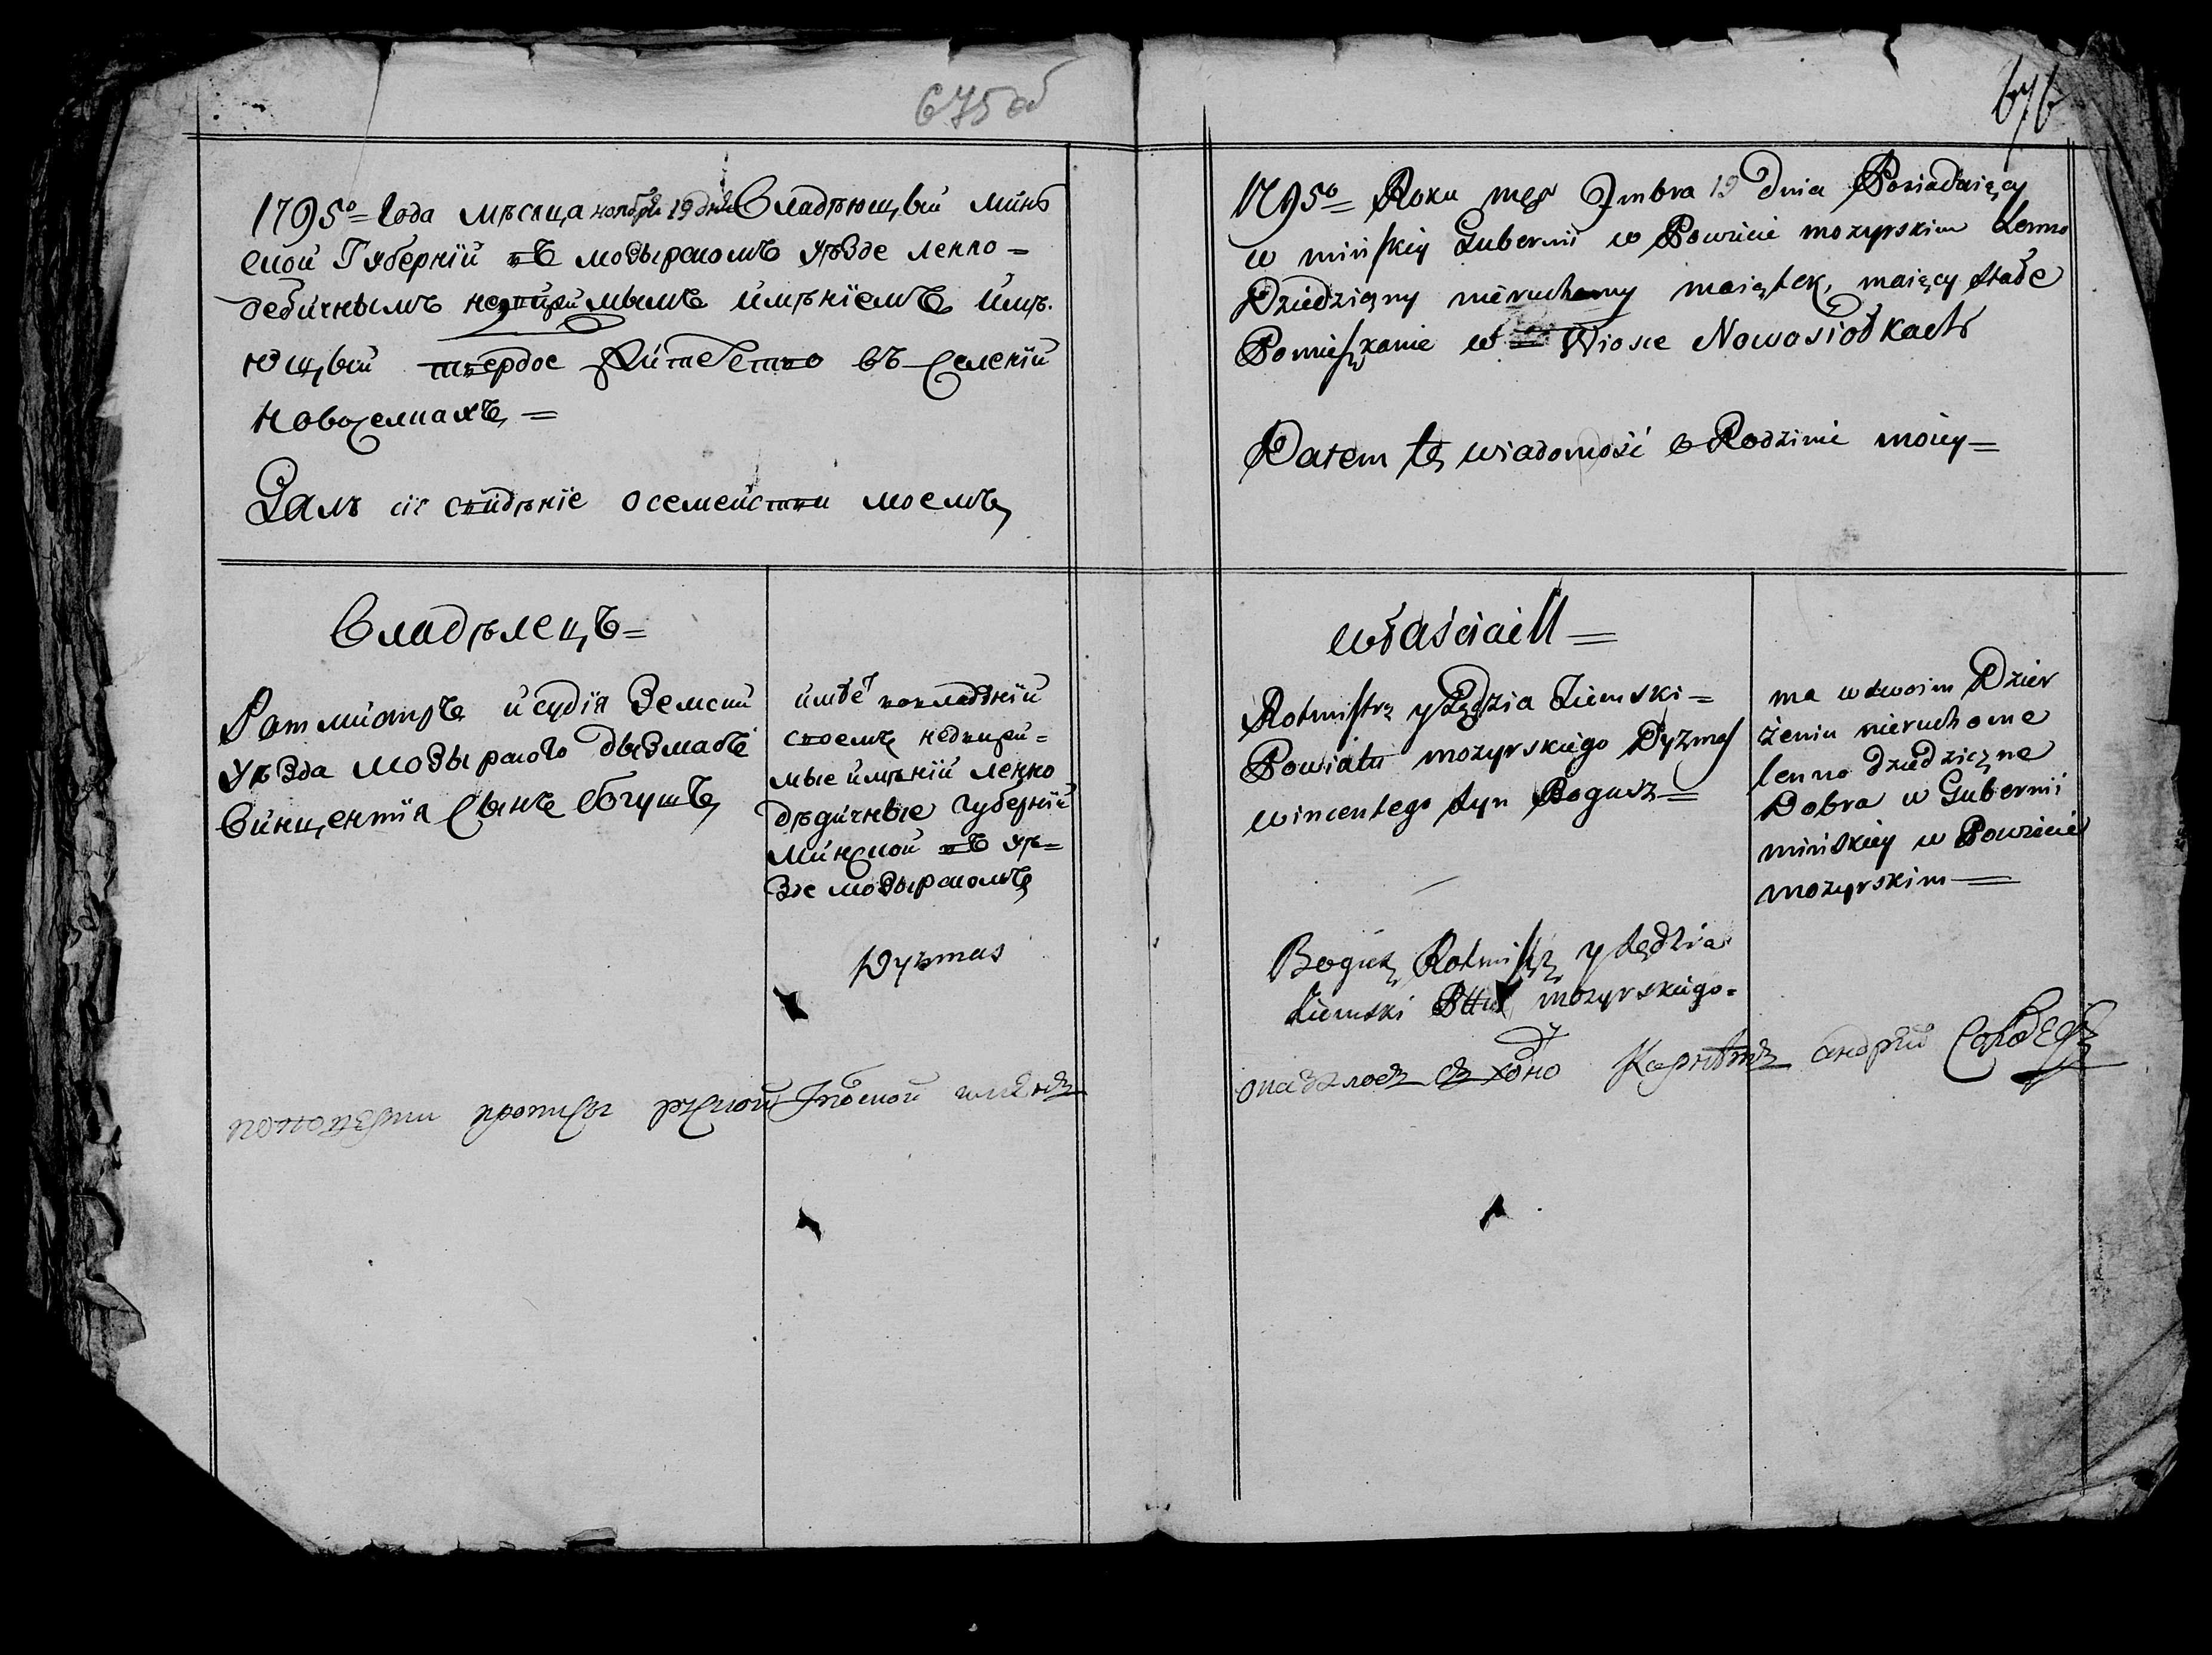 675 об
1795º = Года мѣсяца ноября 19 дня Владѣющый Минъ
ской Губерніи въ мозырскомъ уѣзде ленно =
дедичнымъ недвижимымъ имѣніемъ имѣ.
ющый твердое жителство въ селеніи
Новоселкахъ =
Далъ сіе свидѣніе о семействи моемъ
Владѣлецъ =
Ротмистръ и судія Земски
уѣзда мозырского дызмасъ
Винцентія сынъ Богушъ
имѣе во владѣніи
своемъ недвижи =
мые имѣніи ленно
дѣдичные Губерніи
Минской въ уѣ =
зде мозырскомъ
Dyzmas
676
1795º = Roku mca 9mbra 19 dnia Posiadaiący
w minskiy Gubernii w Powiecie mozyrskim Lenno
Dziedziczny nieruchomy maiątek, maiący stałe
Pomieszkanie w Wiosce Nowosiołkach
Dałem tę wiadomość o Rodzinie moiey =
właściciel =
Rotmistrz y Sędzia Ziemski =
Powiatu mozyrskiego Dyzmas
wincentego syn Bogusz =
ma w swoim Dzier
żeniu nieruchome
lenno dziedziczne
Dobra w Gubernii
minskiey w Powiecie
mozyrskim =
Bogusz Rotmistrz y sędzia
Ziemski Pttu mozyrskiego =
андрей